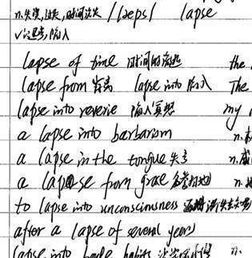 n.失误,过失,时间流失 /læps/ lapse
v.退步,陷入
lapse of time 时间的流逝 the
lapse from 背离 lapse into 陷入 The
lapse into reverie 陷入冥想 my
a lapse into barbarism n.
a lapse in the tongue 失言 n.
a lapse from grace n.
to lapse into unconsciousness n.
after a lapse of several years
lapse into bade habits n.